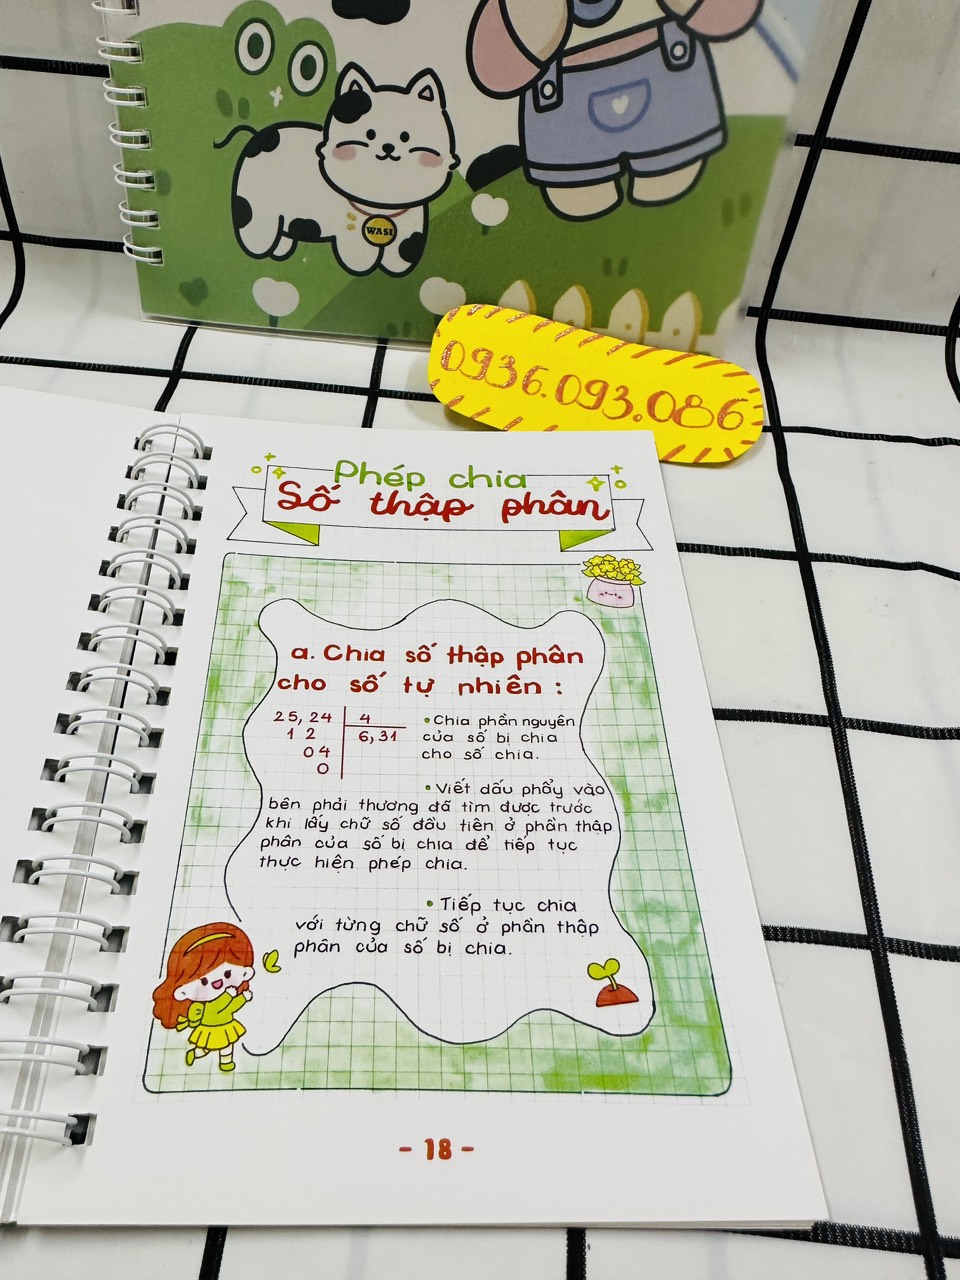 WASI
0936.093.086
Phép chia
Số thập phân
a. Chia số thập phân
cho số tự nhiên :
25,24 4
12 6,31
04
0
• Chia phần nguyên
của số bị chia
cho số chia.
• Viết dấu phẩy vào
bên phải thương đã tìm được trước
khi lấy chữ số đầu tiên ở phần thập
phân của số bị chia để tiếp tục
thực hiện phép chia.
• Tiếp tục chia
với từng chữ số ở phần thập
phân của số bị chia.
- 18 -